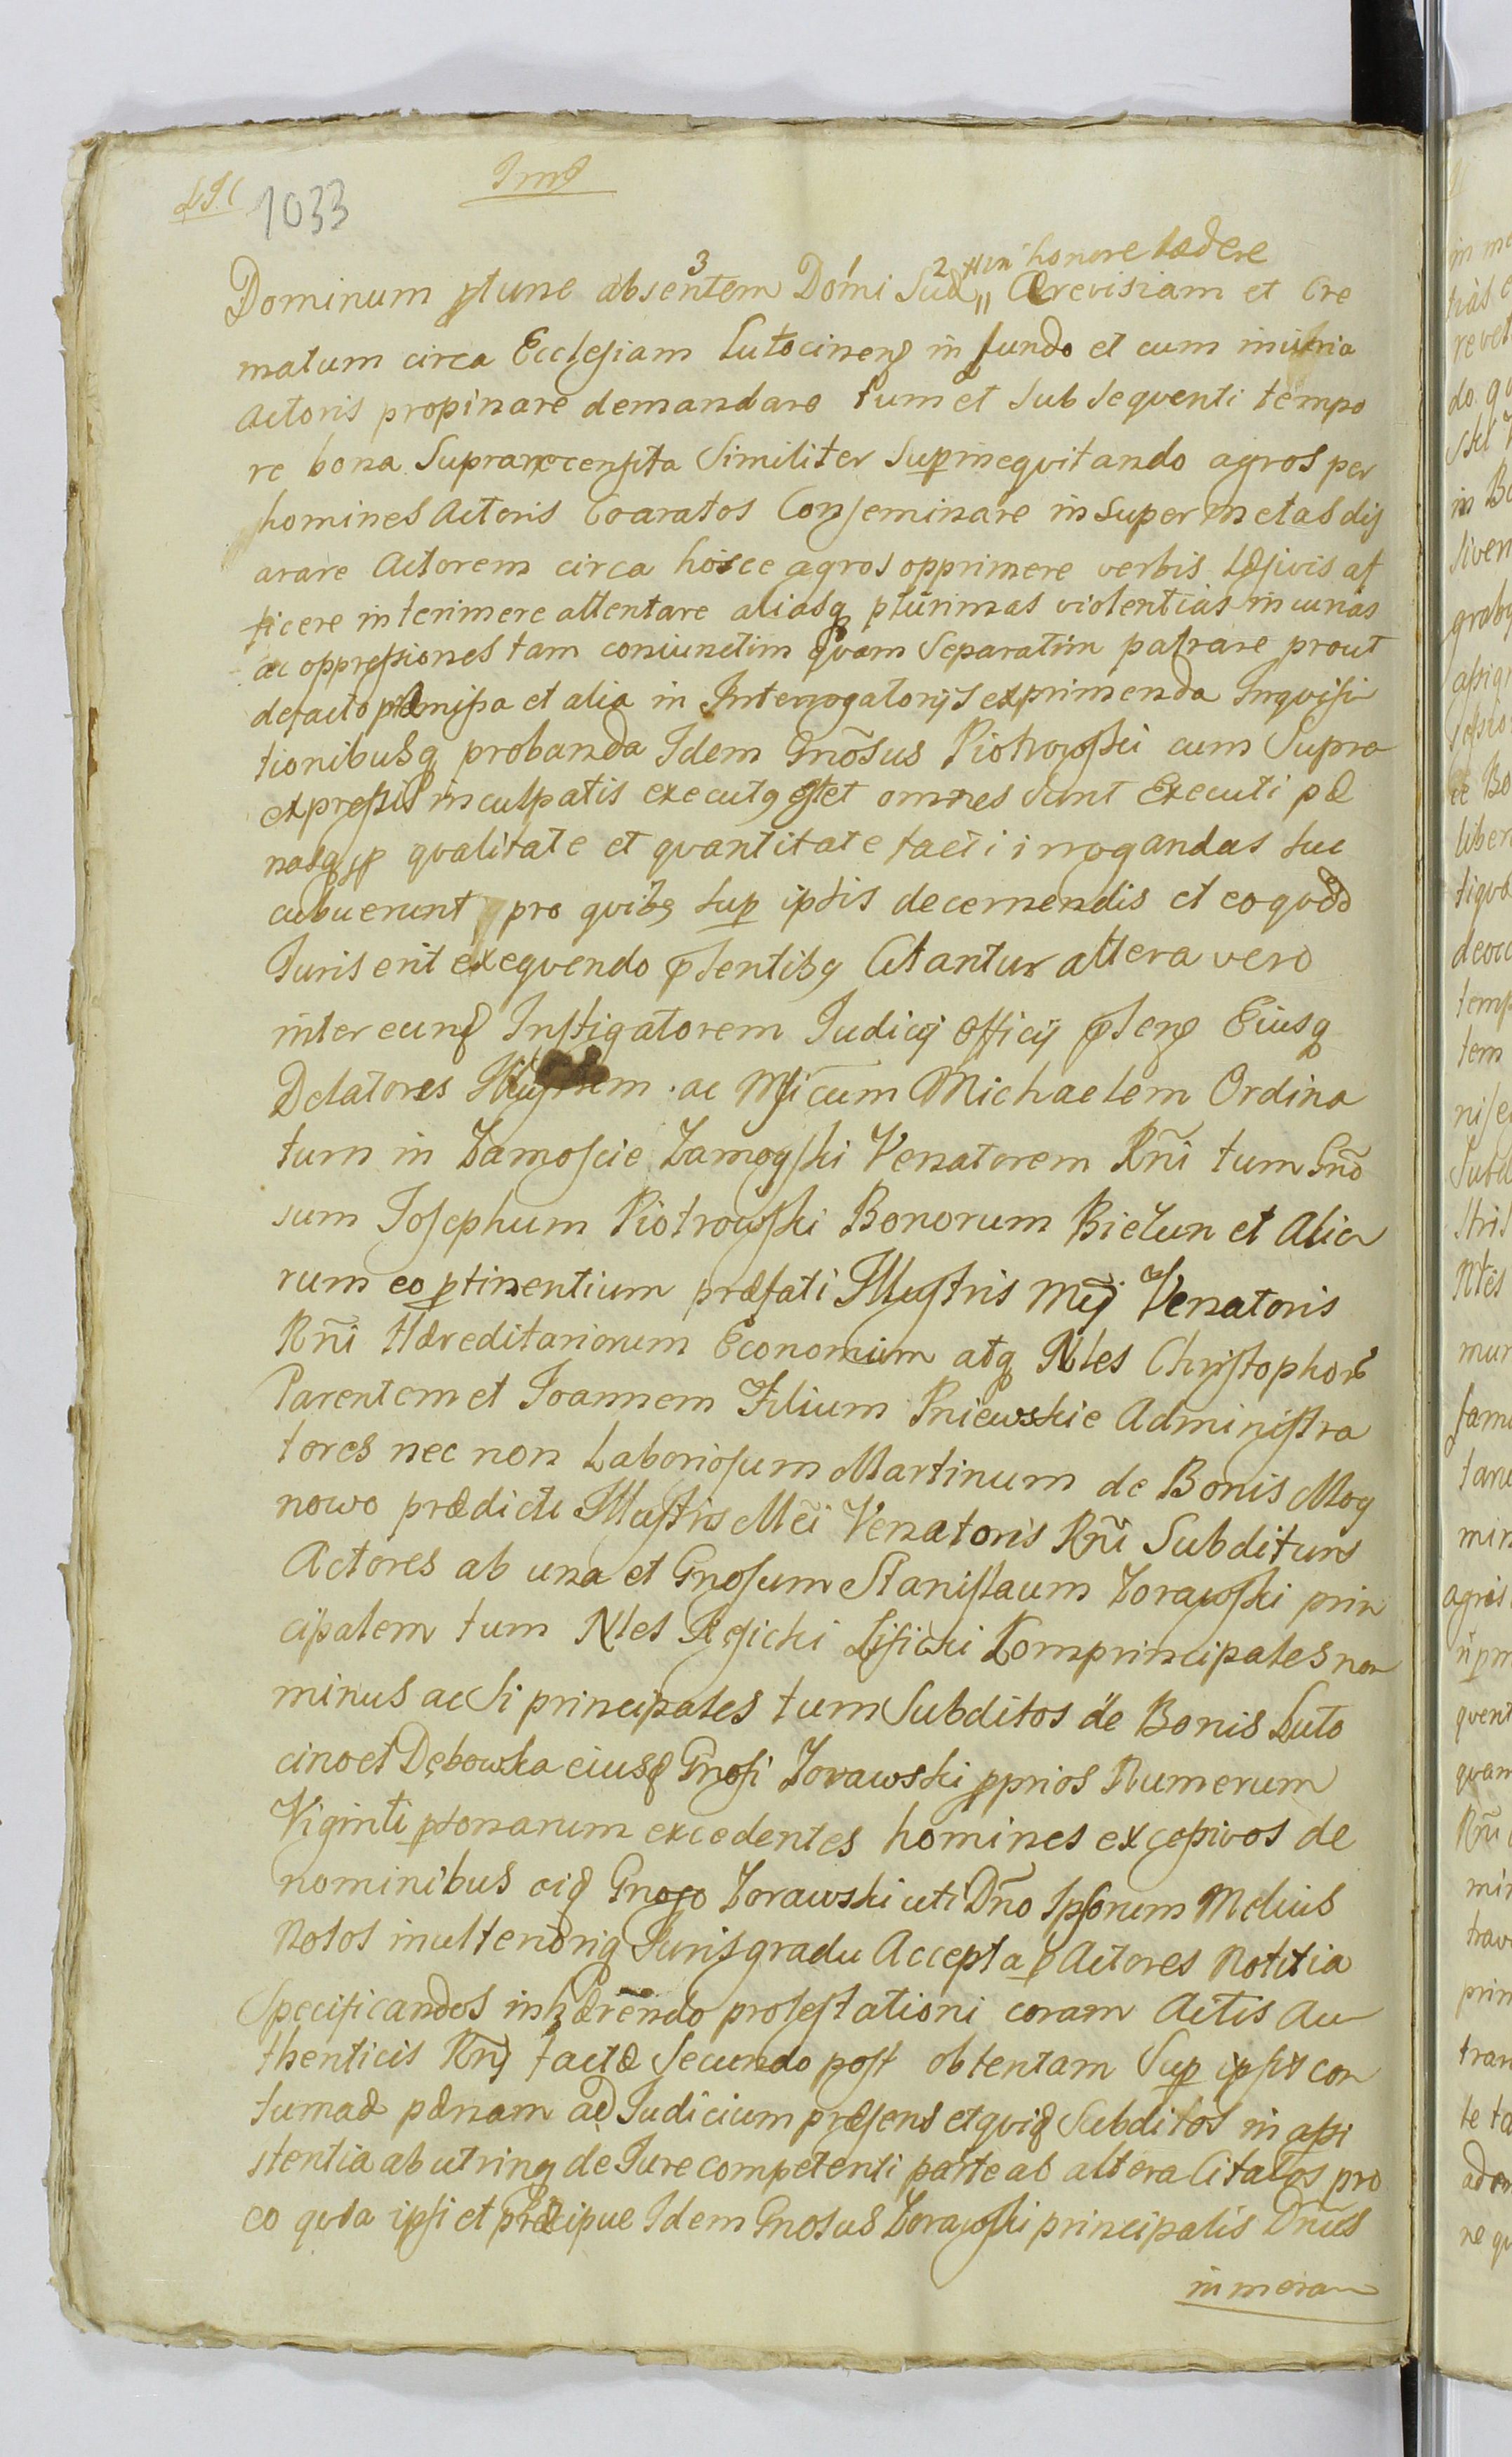 1033
Dominum ptunc absentem Dōmi Sua in honore lædere
3 1 2
" Cærevisiam et Cre
matum circa Ecclesiam Lutocinens in fundo et cum iniuria
Actoris propinare demandare tum et subsequenti tempo
re bona Supra recensita Similiter Superinequitando agros per
homines Actoris Exaratos Conseminare insuper metas dis
arare Actorem circa hosce agros opprimere verbis læsivis af
ficere interimere attentare aliasq plurimas violentias iniurias
ac oppressiones tam coniunctim quam Separatim patrare prout
defacto præmissa et alia in Interrogatorijs exprimenda Inquisi
tionibusq probanda Idem Gnōsus Piotrowski cum Supra
expressis inculpatis executg est et omnes sunt Executi pæ
nasq p qualitate et quantitate facti irrogandas suc
cubuerunt pro quibg sup ipsis decernendis et eo quod
Juris erit exequendo pſentibg Citantur altera vero
inter eund Instigatorem Judicij Officij pſens Eiusq
Delatores Illustrem ac Mficum Michaelem Ordina
tum in Zamoscie Zamoyski Venatorem Rñi tum Gnō
sum Josephum Piotrowski Bonorum Bielun et Alio
rum eo ptinentium præfati Illustris Mei Venatoris
Rñi Hæreditariorum Economum atq Nles Christophorū
Parentem et Joannem Filium Pniewskie Administra
tores nec non Laboriosum Martinum de Bonis Mog
nowo prædicti Illustris Mei Venatoris Rñi Subditum
Actores ab una et Gnosum Stanislaum Zorawski prin
cipalem tum Nles Lisicki Comprincipales non
minus ac Si principales tum Subditos de Bonis Luto
cino et Dębowka eiusd Gnosi Zorawski pprios Numerum
Viginti psonarum excedentes homines excessivos de
nominibus eid Gnoso Zorawski uti Dño Ipsorum Melius
Notos in ulteriorig Juris gradu Accepta p Actores Notitia
Specificandos inhærendo protestationi coram Actis Au
thenticis Rñi factæ Secundo post obtentam Sup ipsis con
tumaæ pænam ad Judicium præsens et quid Subditos in assi
stentia ab utrinq de Jure competenti parte ab altera Citatos pro
eo quia ipsi et præcipue Idem Gnosus Zorawski principalis Dñus
in mora